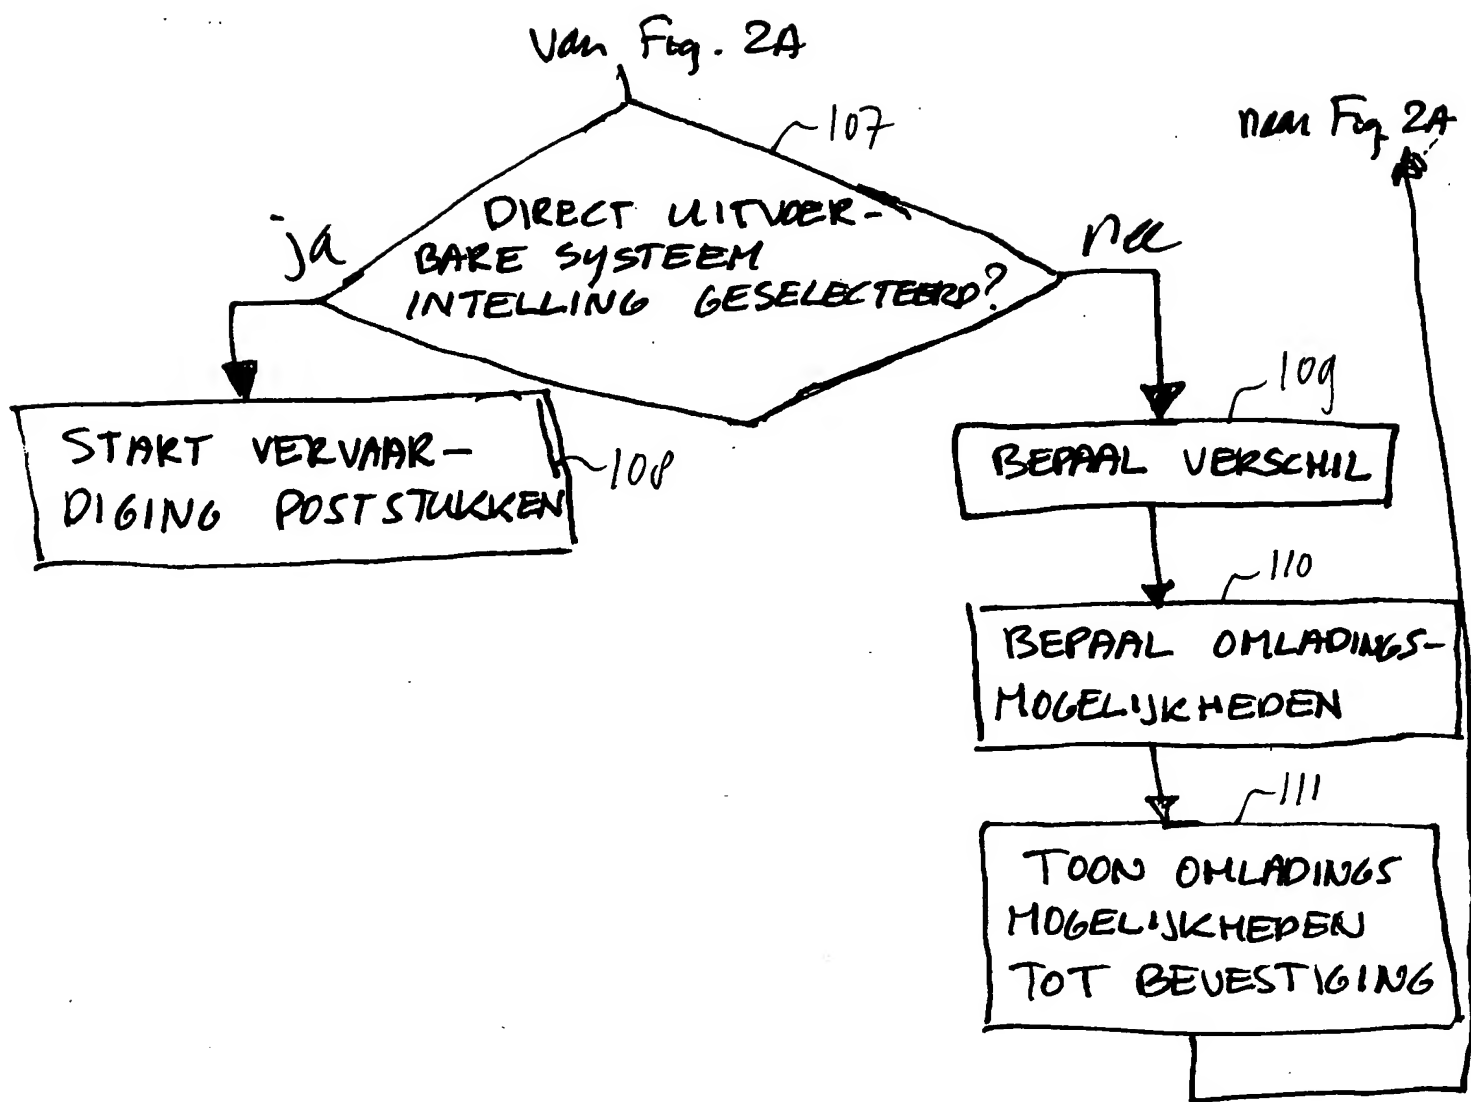 van Fig. 2A
107
naar Fig 2A
DIRECT UITVOER-
BARE SYSTEEM
INTELLING GESELECTEERD?
ja
nee
START VERVAAR-
DIGING POSTSTUKKEN
108
109
BEPAAL VERSCHIL
110
BEPAAL OMLADINGS-
MOGELIJKHEDEN
111
TOON OMLADINGS
MOGELIJKHEDEN
TOT BEVESTIGING